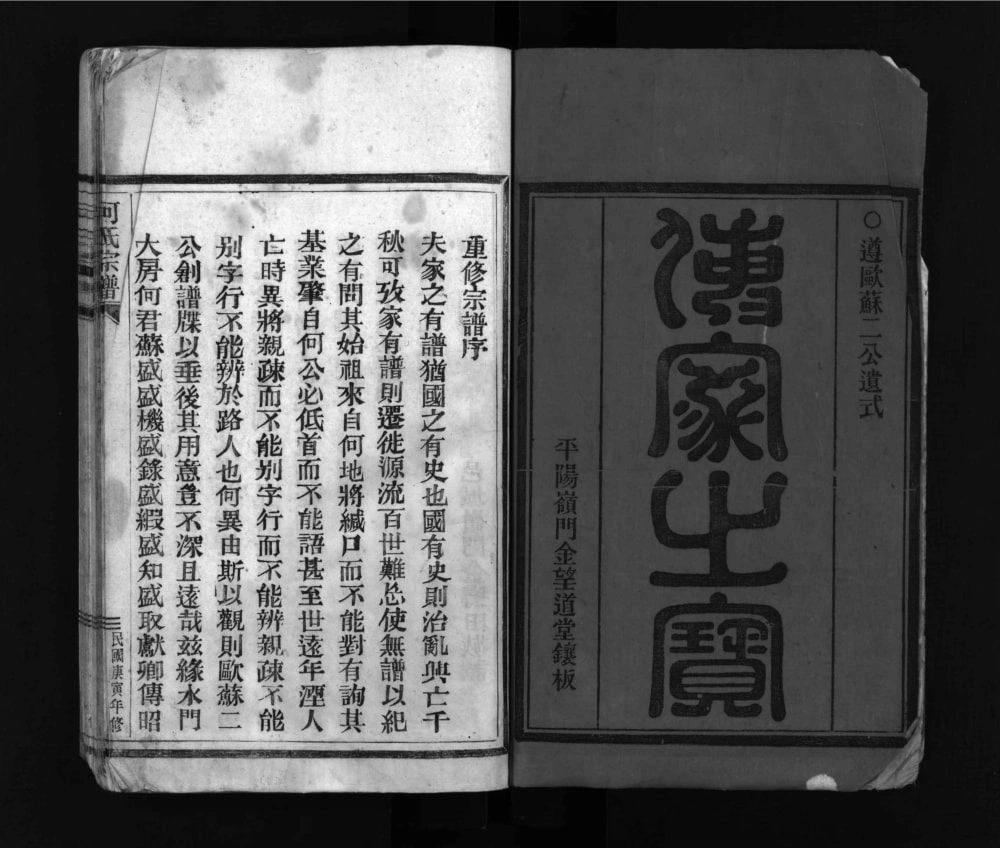 ○遵歐蘇二公遺式
傳家之寶
平陽嶺門金望道堂鑲板
重修宗譜序
夫家之有譜猶國之有史也國有史則治亂興亡千
秋可攷家有譜則遷徙源流百世難忘使無譜以紀
之有問其始祖來自何地將緘口而不能對有詢其
基業肇自何公必低首而不能語甚至世遠年湮人
亡時異將親疎而不能別字行而不能辨親疎不能
別字行不能辨於路人也何異由斯以觀則歐蘇二
公創譜牒以垂後其用意豈不深且遠哉茲緣水門
大房何君蘇盛盛機盛錄盛緞盛知盛取獻卿傳昭
何氏宗譜
民國庚寅年修